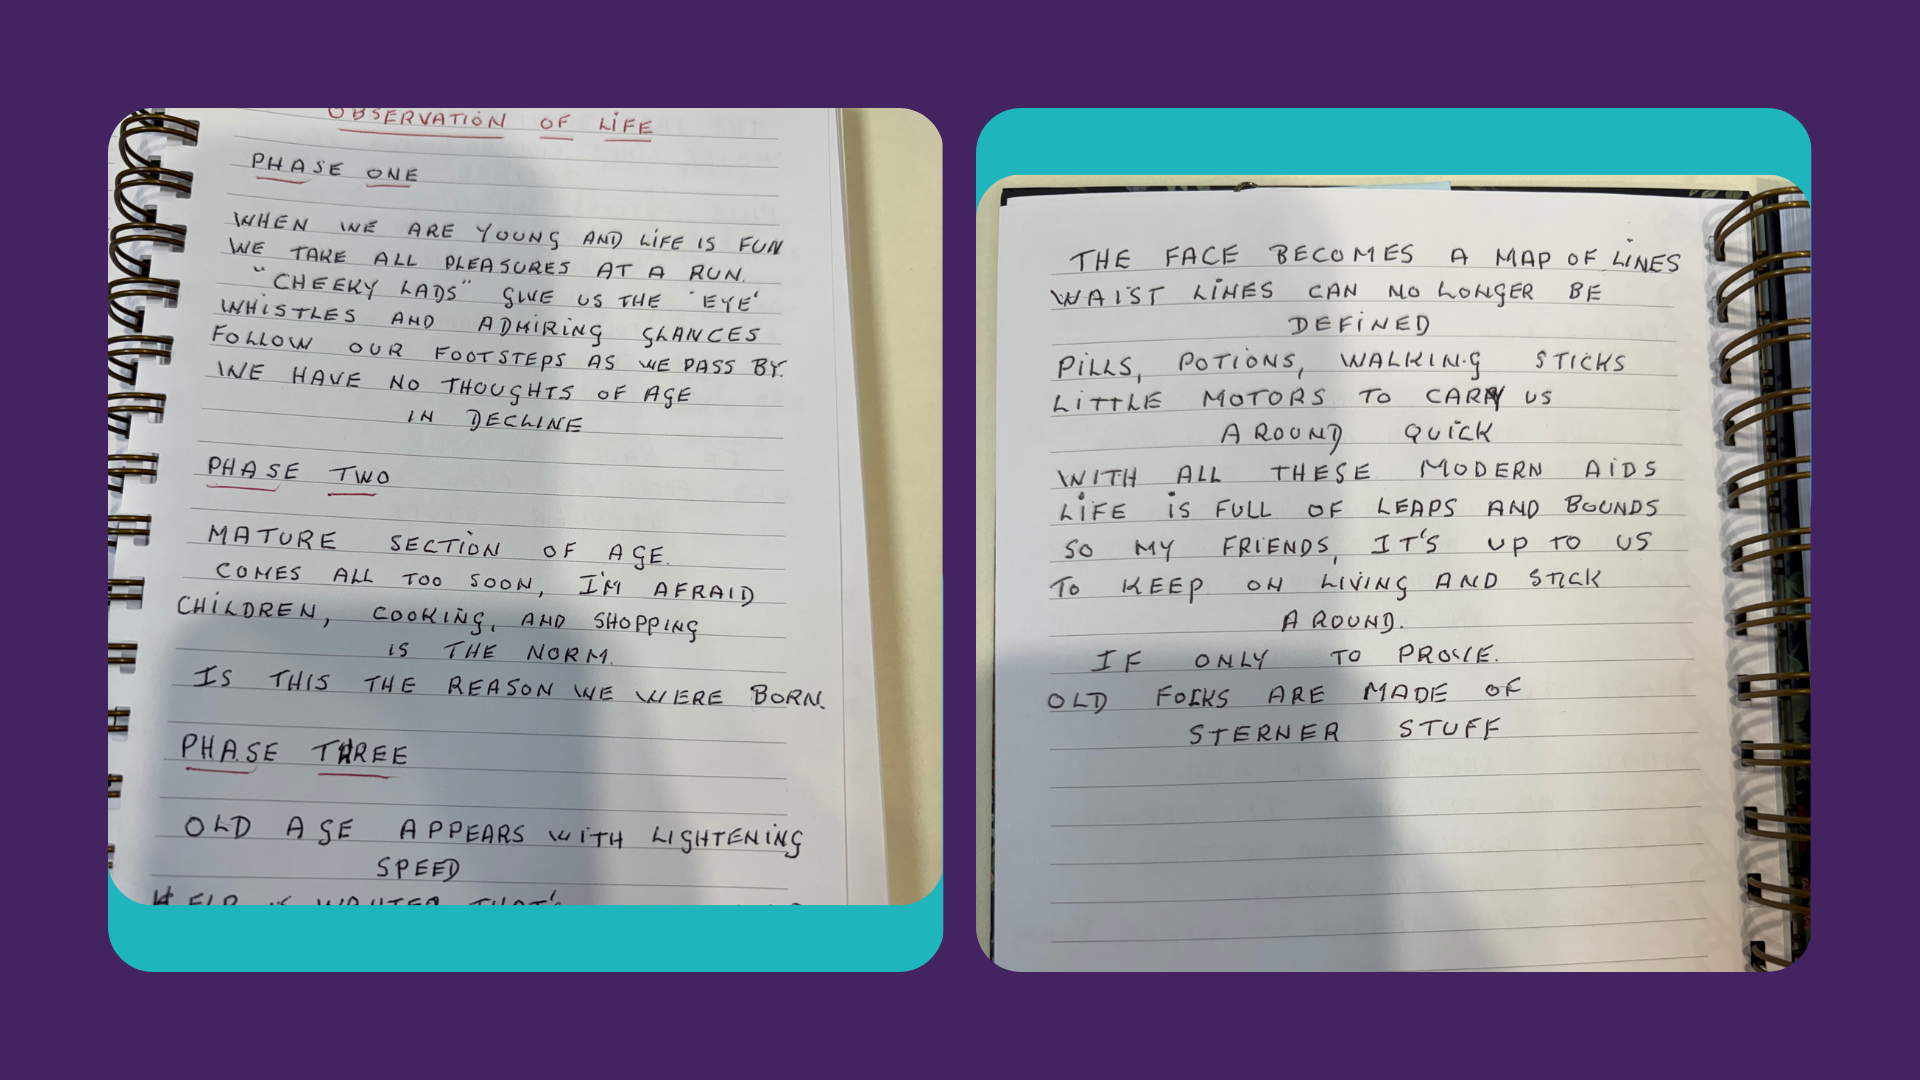 OBSERVATION OF LIFE
PHASE ONE
WHEN WE ARE YOUNG AND LIFE IS FUN
WE TAKE ALL PLEASURES AT A RUN.
"CHEEKY LADS" GIVE US THE 'EYE'
WHISTLES AND ADMIRING GLANCES
FOLLOW OUR FOOTSTEPS AS WE PASS BY.
WE HAVE NO THOUGHTS OF AGE
IN DECLINE
PHASE TWO
MATURE SECTION OF AGE.
COMES ALL TOO SOON, I'M AFRAID
CHILDREN, COOKING, AND SHOPPING
IS THE NORM.
IS THIS THE REASON WE WERE BORN.
PHASE THREE
OLD AGE APPEARS WITH LIGHTENING
SPEED
HELP IS WANTED THAT'S
THE FACE BECOMES A MAP OF LINES
WAIST LINES CAN NO LONGER BE
DEFINED
PILLS, POTIONS, WALKING STICKS
LITTLE MOTORS TO CARRY US
AROUND QUICK
WITH ALL THESE MODERN AIDS
LIFE IS FULL OF LEAPS AND BOUNDS
SO MY FRIENDS, IT'S UP TO US
TO KEEP ON LIVING AND STICK
AROUND.
IF ONLY TO PROVE.
OLD FOLKS ARE MADE OF
STERNER STUFF